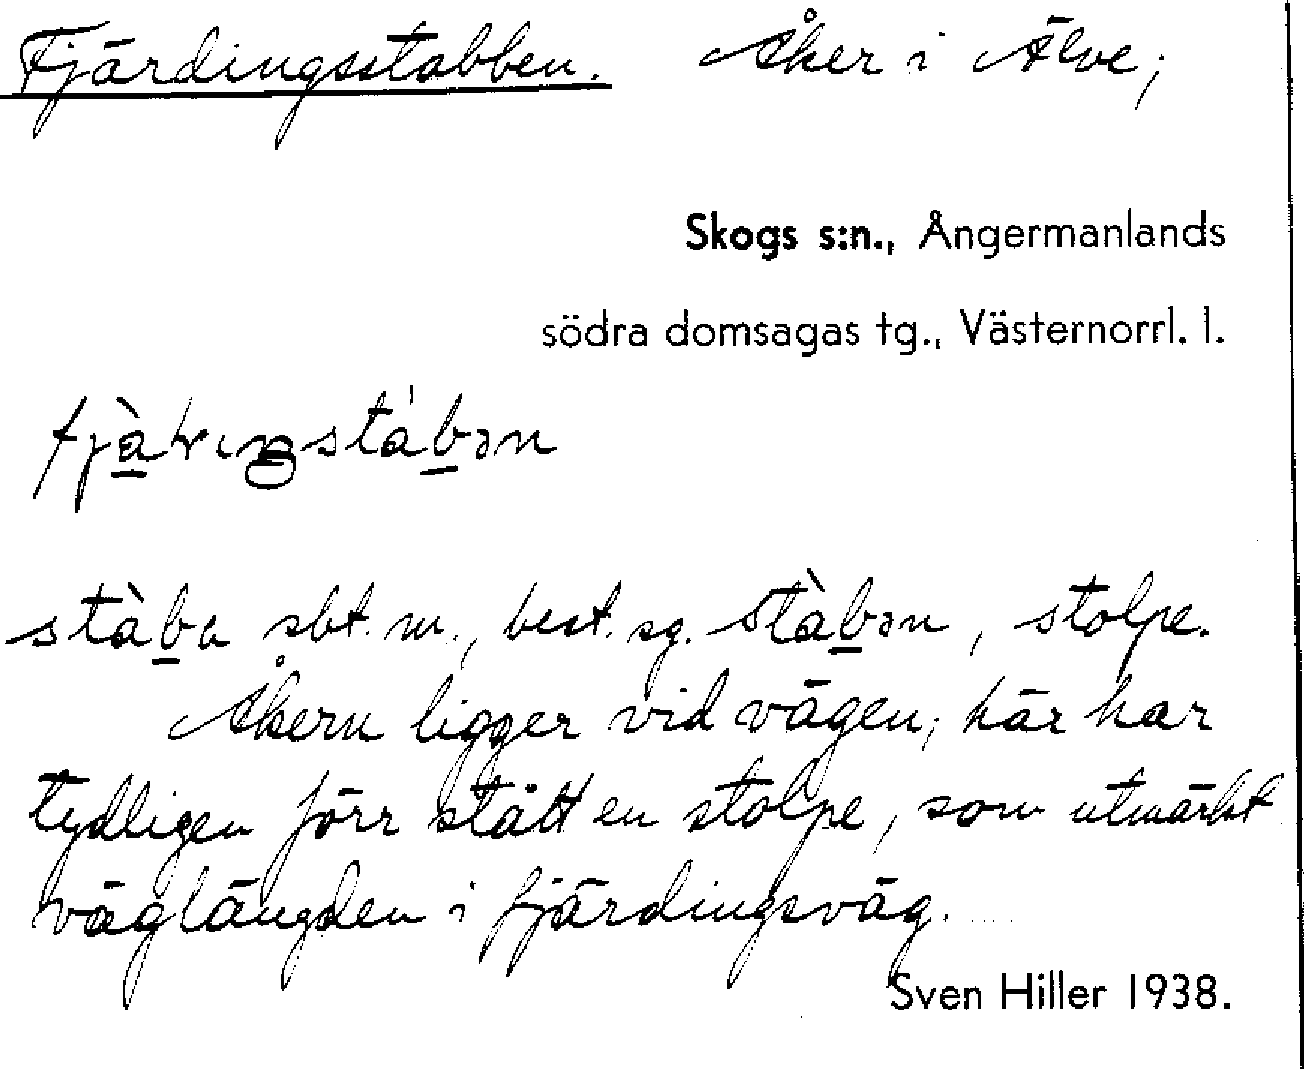 Fjärdingsstabben. Åker i Älve;
Skogs s:n., Ångermanlands
södra domsagas tg., Västernorrl. l.
stàba sbt. m., best. sg. stàbən, stolpe.
Åkern ligger vid vägen; här har
tydligen förr stått en stolpe, som utmärkt
väglängden i fjärdingsväg.
Sven Hiller 1938.